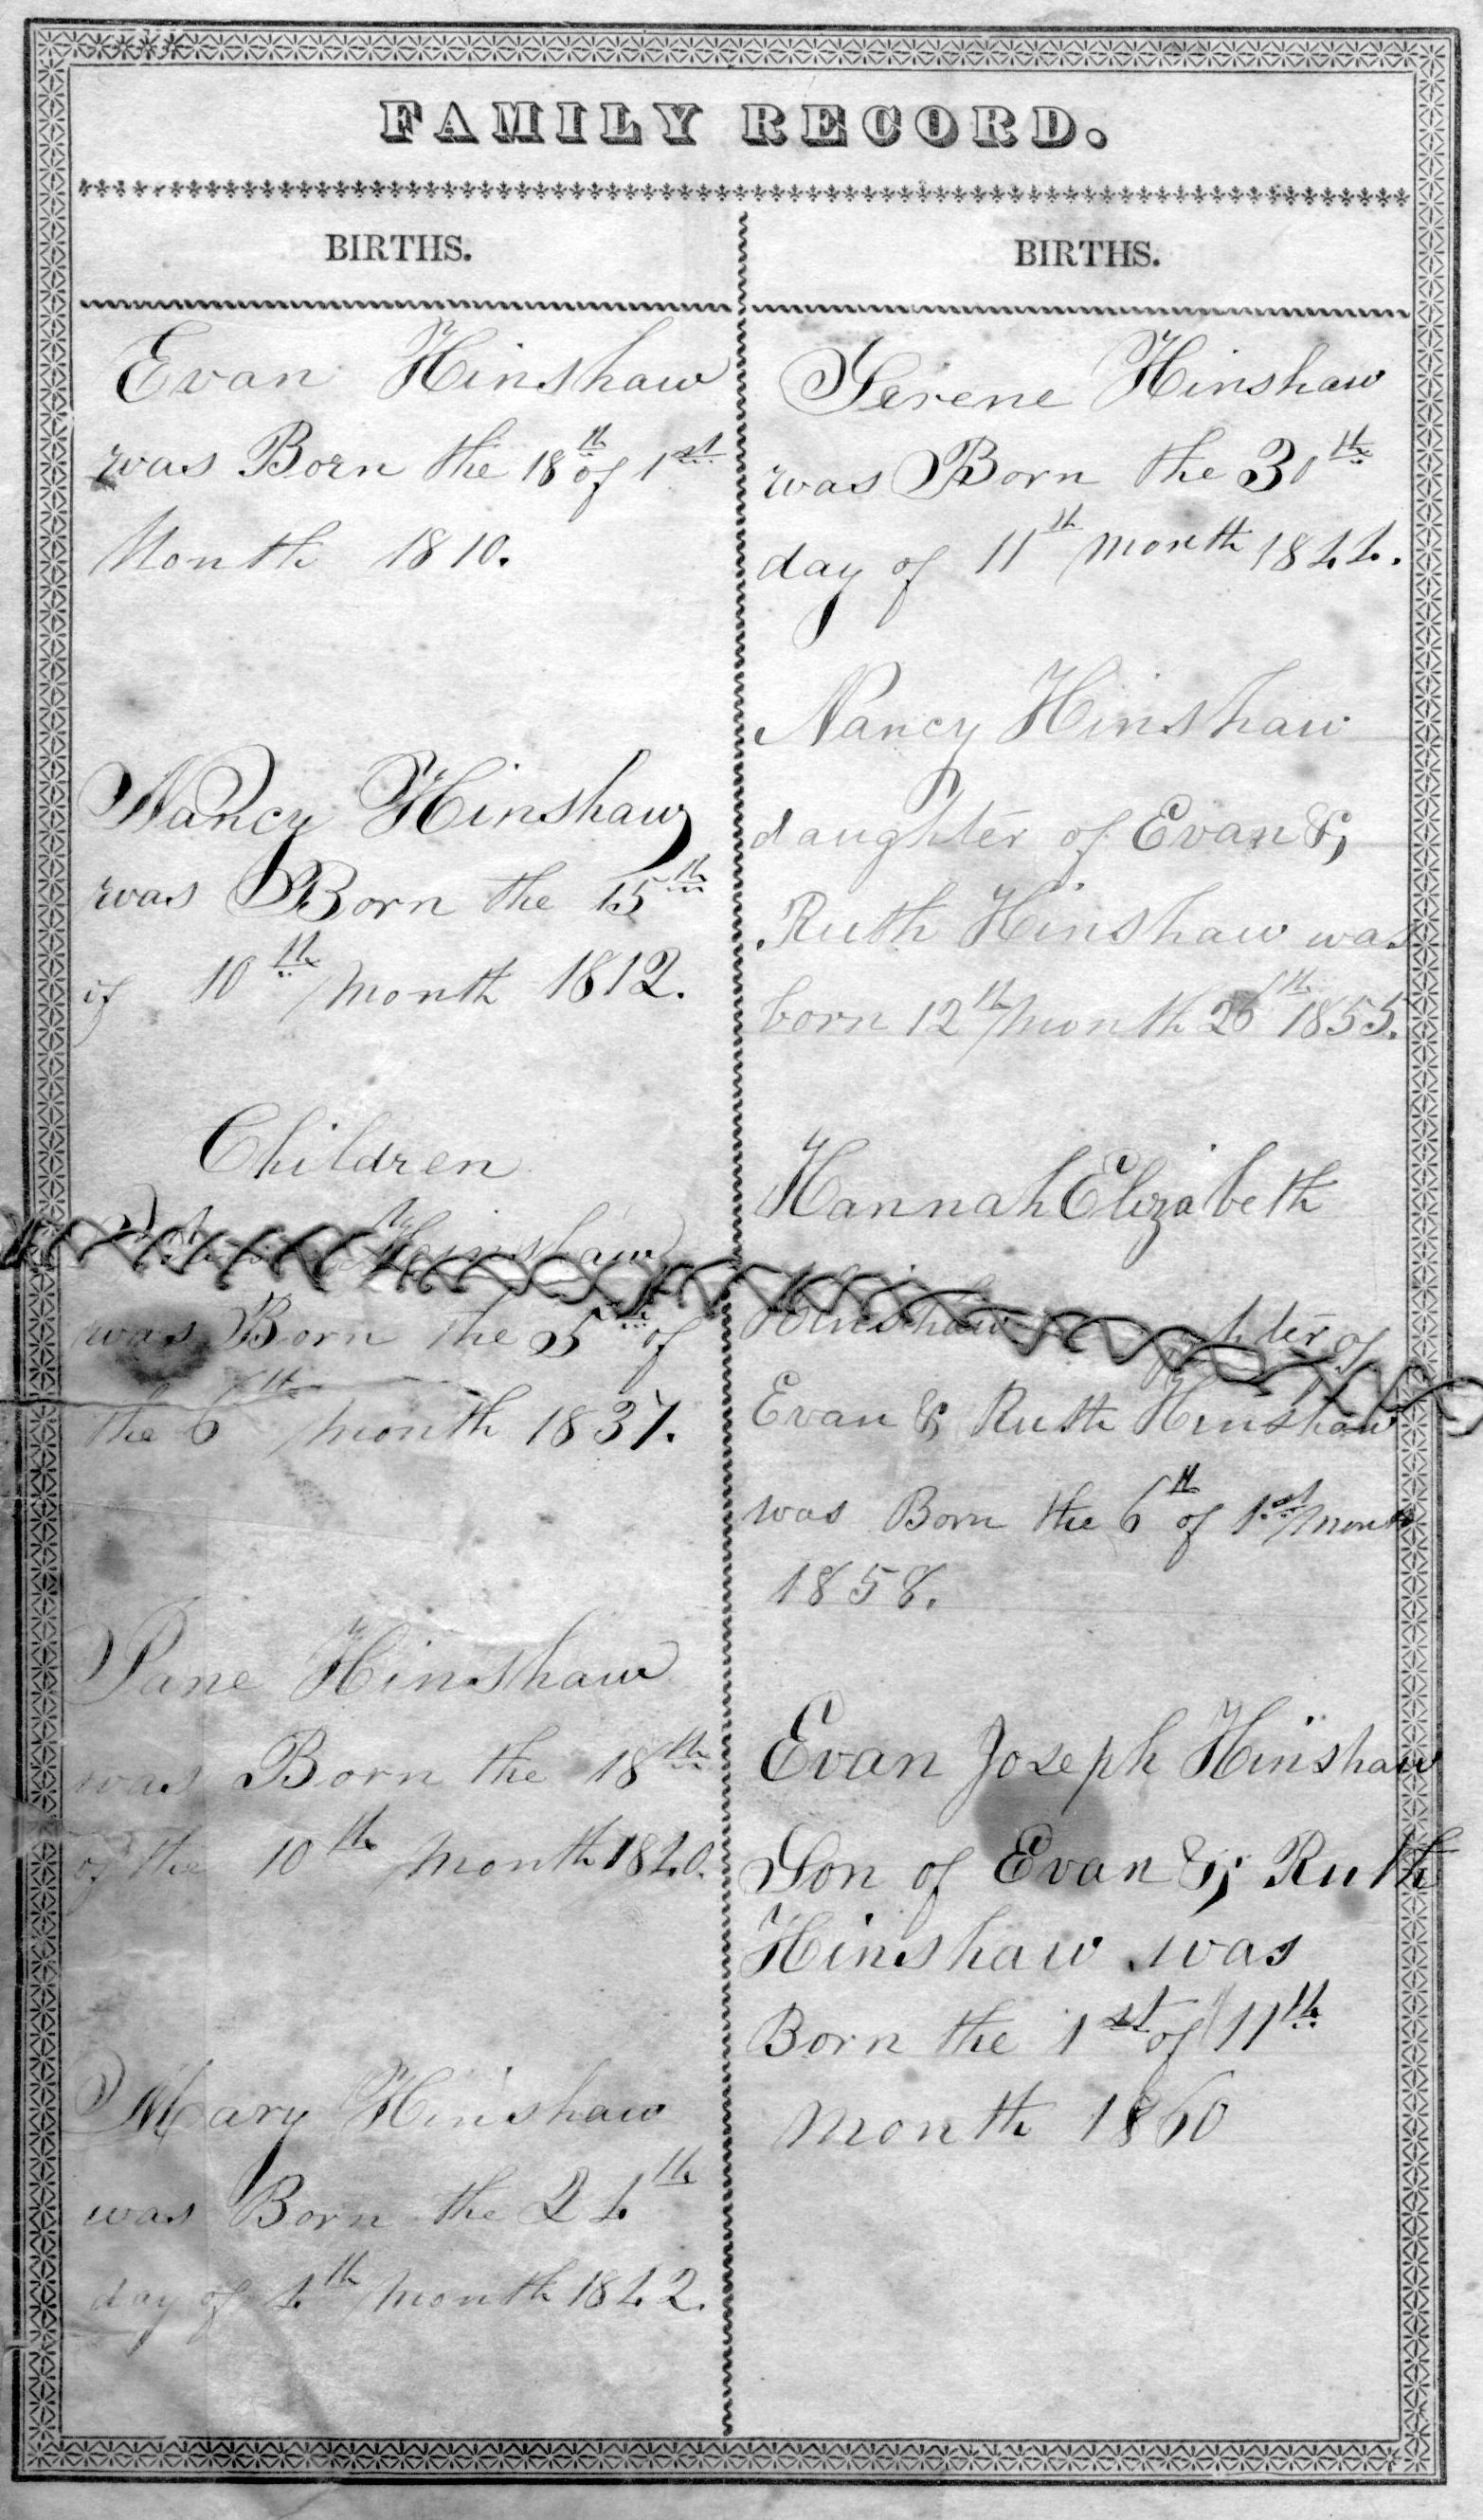 FAMILY RECORD.
BIRTHS.
Evan Hinshaw
was Born the 18th of 1st
Month 1810.
Nancy Hinshaw
was Born the 15th
of 10th month 1812.
Children
Hinshaw
was Born the 5th of
the 6th month 1837.
Jane Hinshaw
was Born the 18th
of the 10th month 1840.
Mary Hinshaw
was Born the 24th
day of 4th month 1842.
BIRTHS.
Serene Hinshaw
was Born the 30th
day of 11th month 1844.
Nancy Hinshaw
daughter of Evan &
Ruth Hinshaw was
born 12th month 26th 1855.
Hannah Elizabeth
Hinshaw hter of
Evan & Ruth Hinshaw
was Born the 6th of 1st month
1858.
Evan Joseph Hinshaw
Son of Evan & Ruth
Hinshaw was
Born the 1st of 11th
month 1860